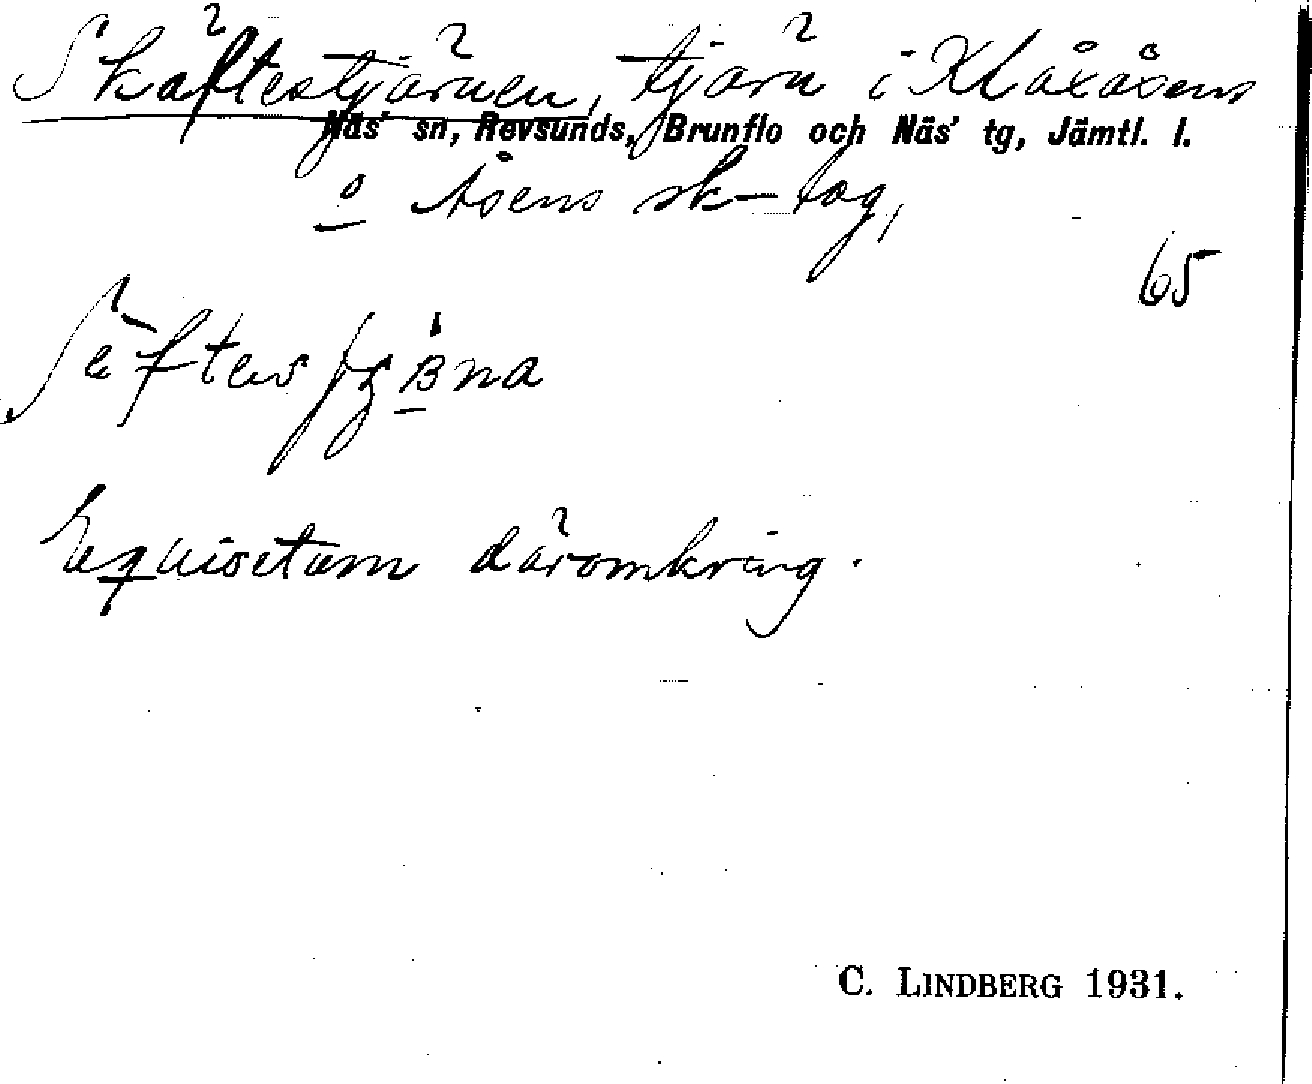 Skäftestjärnen, tjärn i Klaxåsens
Näs' sn, Revsunds, Brunflo och Näs' tg, Jämtl. l.
o Åsens sk-lag,
65
Equisetum däromkring.
C. LINDBERG 1931.